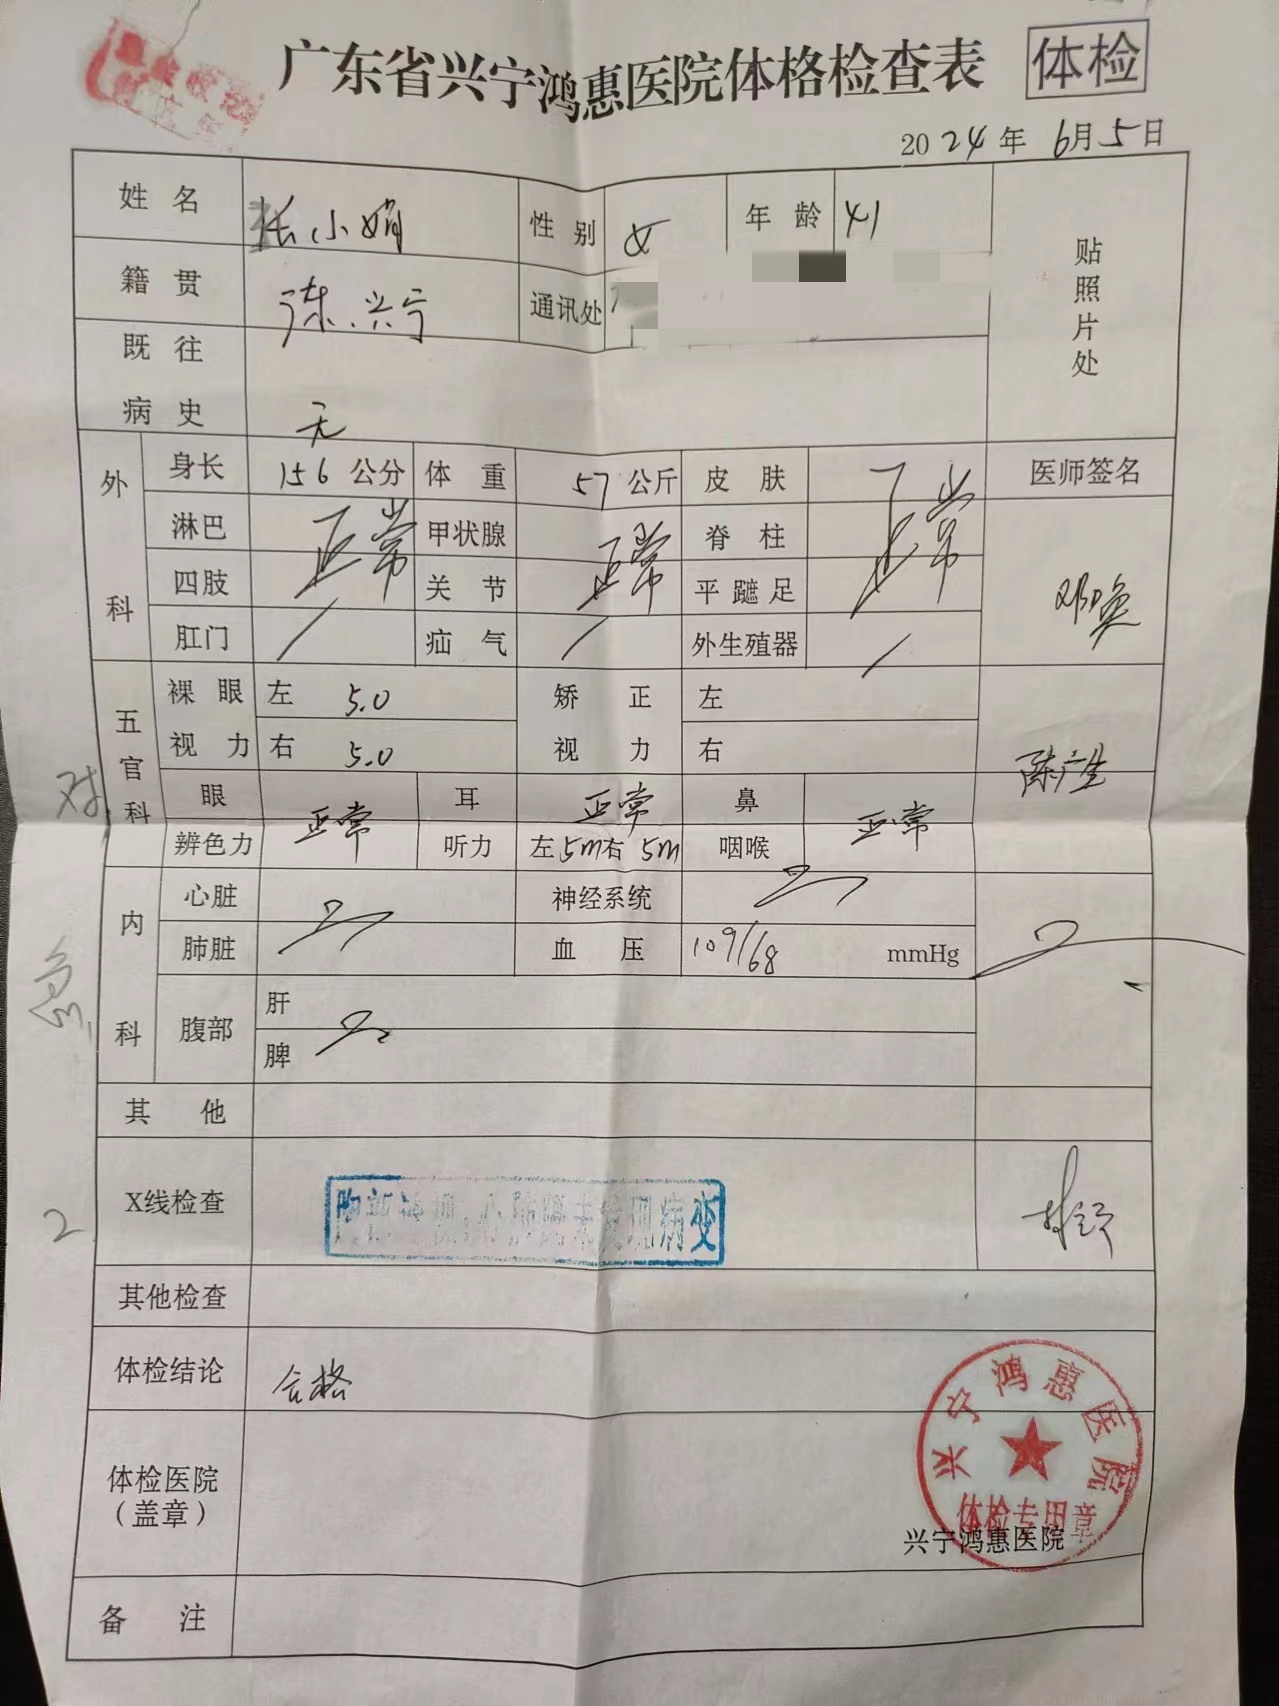 广东省兴宁鸿惠医院体格检查表 体检
2024年 6月5日
姓名 张小娟 性别 女 年龄 41
贴照片处
籍贯 广东.兴宁 通讯处
既往病史 无
外科
身长 156 公分 体重 57 公斤 皮肤 医师签名
淋巴 正常 甲状腺 正常 脊柱 正常
四肢 关节 平蹠足
肛门 / 疝气 / 外生殖器 /
五官科
裸眼视力 左 5.0 矫正视力 左
右 5.0 右
陈广生
眼 正常 耳 正常 鼻 正常
辨色力 听力 左 5m 右 5m 咽喉
内科
心脏 神经系统
肺脏 血压 109/68 mmHg
腹部 肝
脾
其他
X线检查 病变
其他检查
体检结论 合格
体检医院（盖章）
兴宁鸿惠医院
体检专用章
兴宁鸿惠医院
备注
对
2